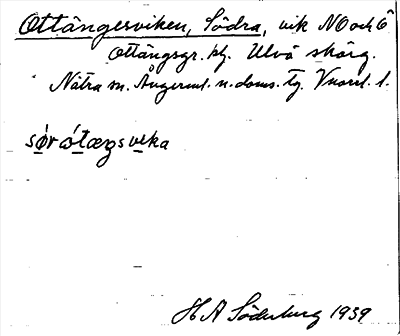 Ottångersviken, Södra, vik NO och Ö
Ottångsgr. kg. Ulvö skärg.
Nätra sn. Ångerml. n. doms. tg. Vnorrl. l.
sø̱r ó̱tæŋsvi̱ka
H A Söderberg 1939